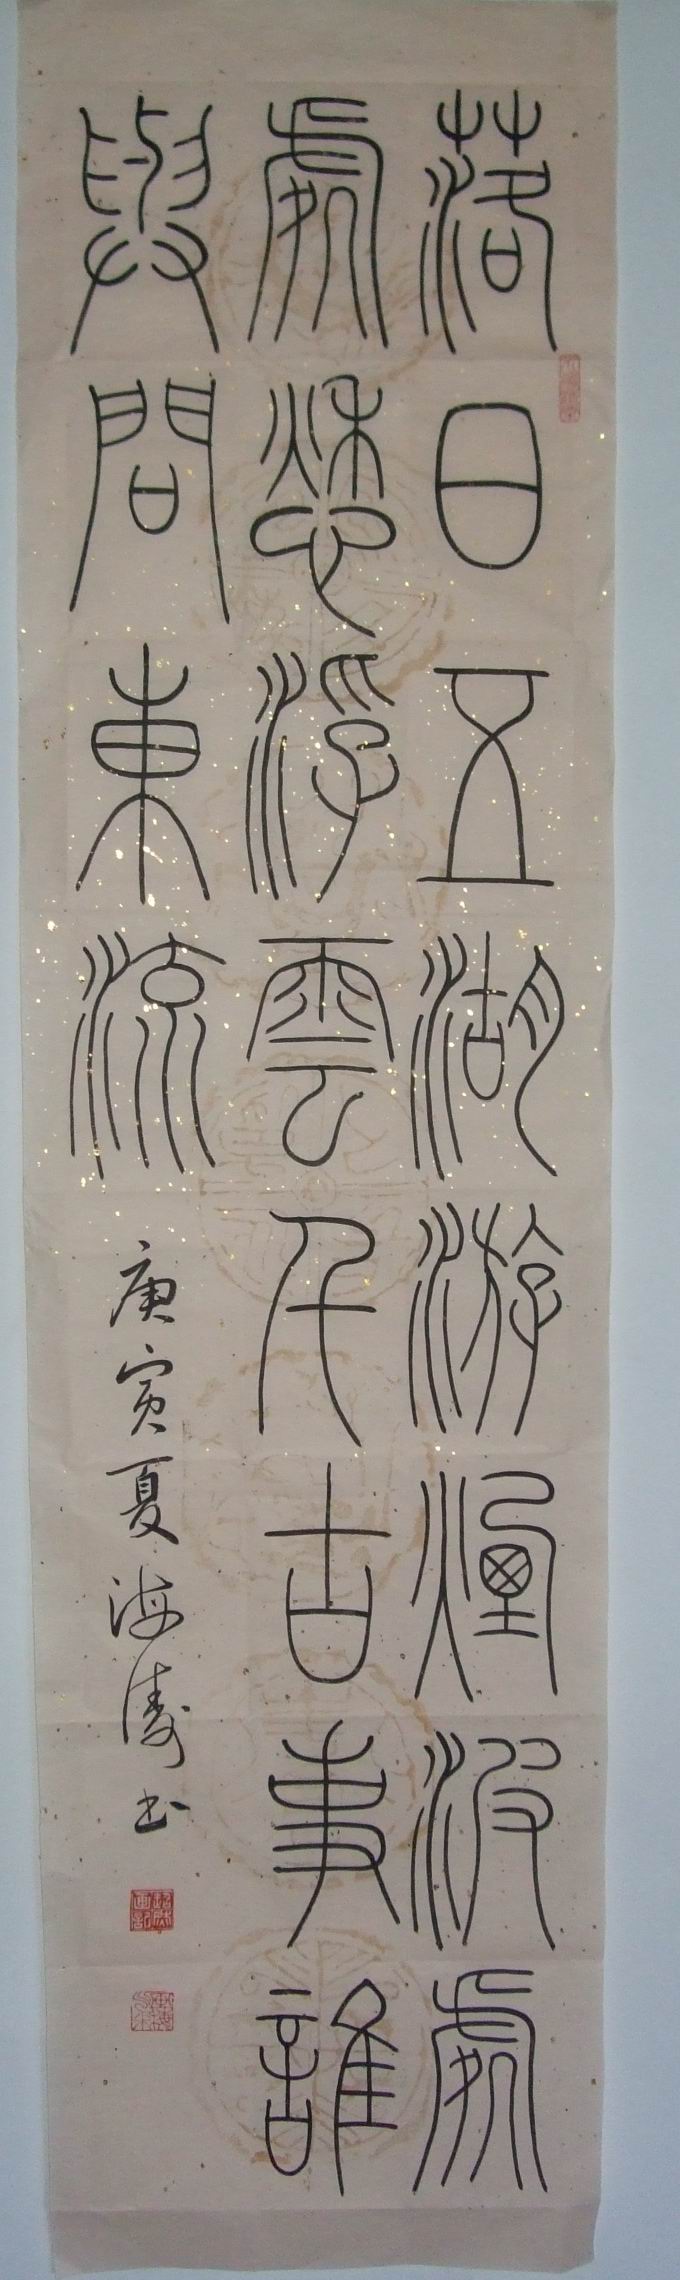 落日五湖游煙波處
處愁浮雲千古事誰
與問東流
庚寅夏海涛书